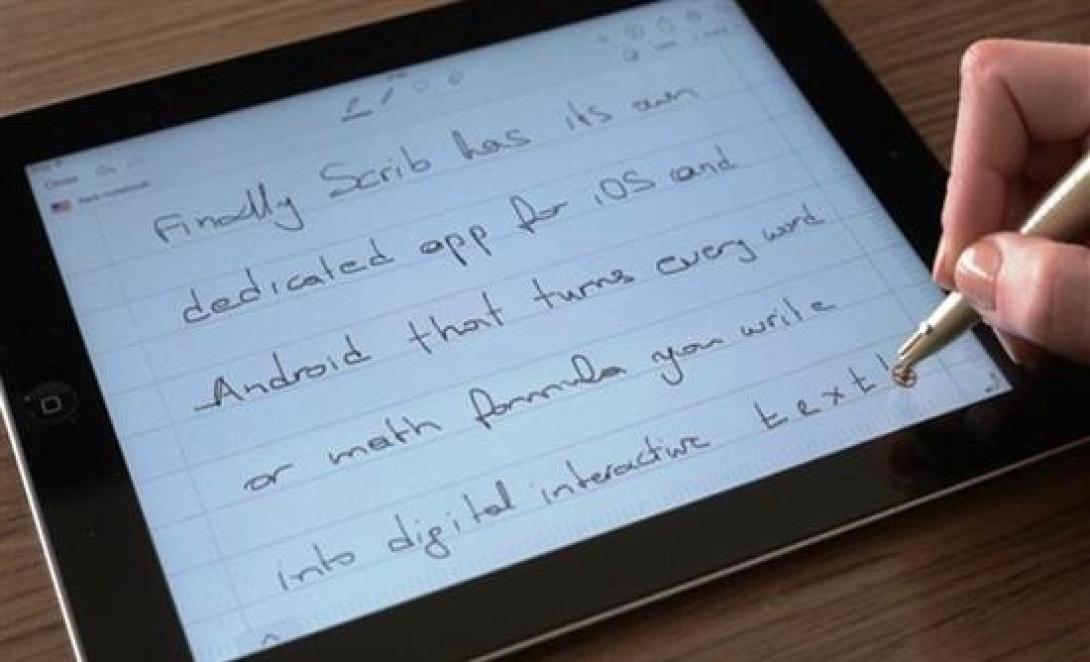 Close
New notebook
Finally Scrib has its own
dedicated app for iOS and
Android that turns every word
or math formula you write
into digital interactive text!